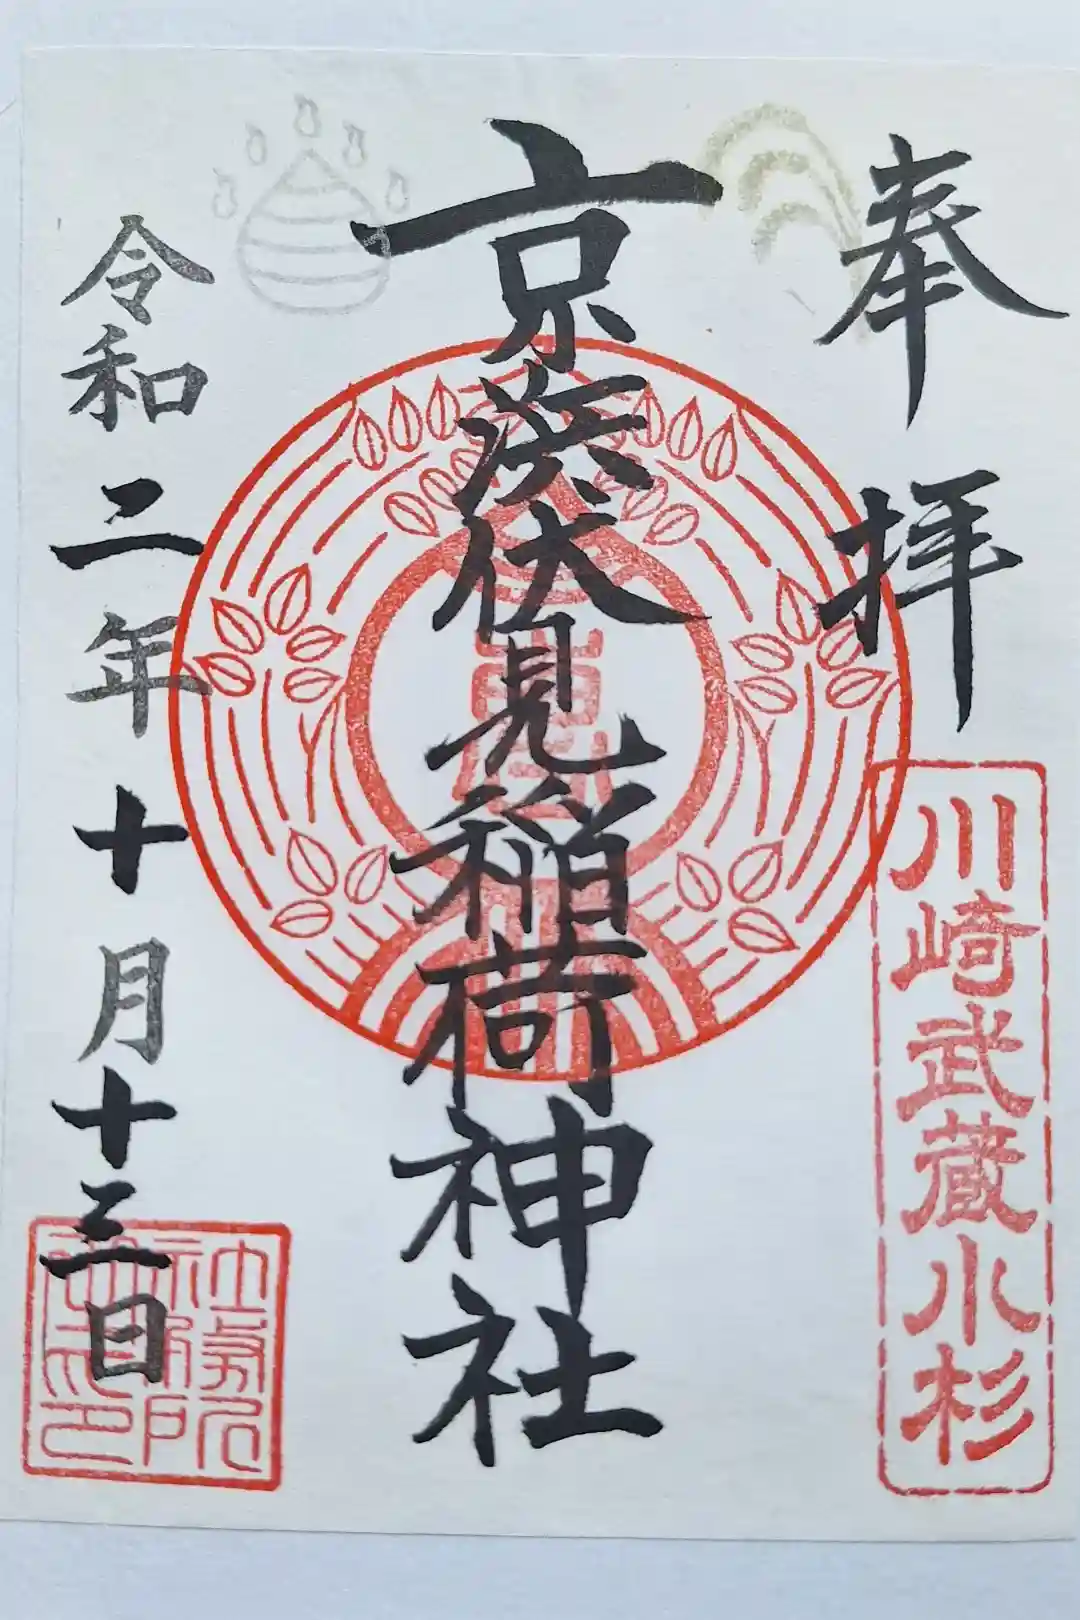 奉拝
川崎武蔵小杉
京濱伏見稲荷神社
令和二年十月十三日
社務所